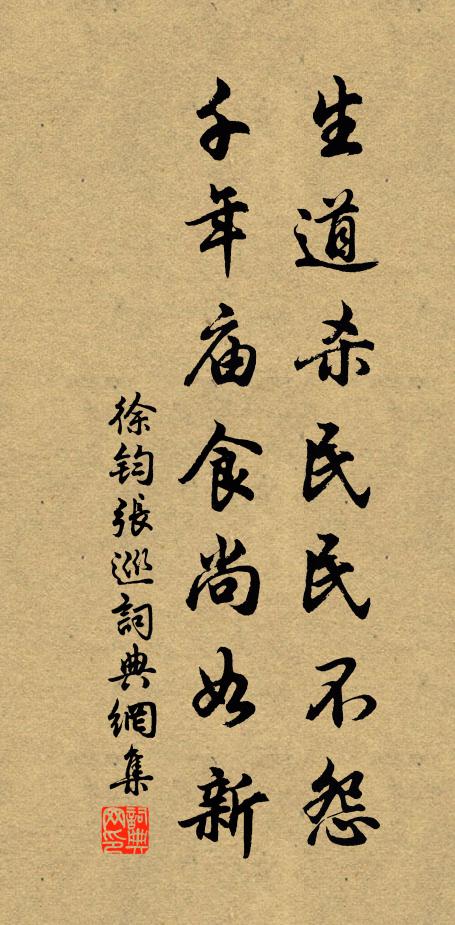 生道杀民民不怨
千年庙食尚如新
徐钧張巡詞典網集
詞典网印